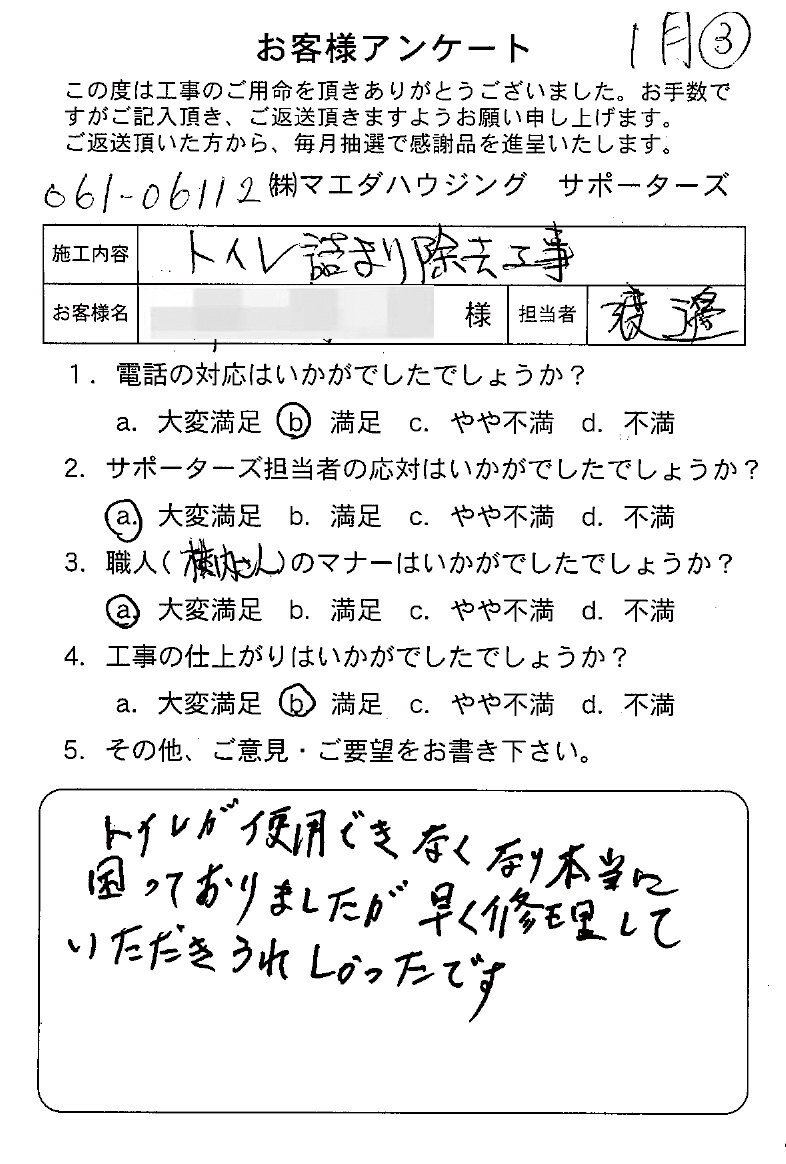 お客様アンケート 1月③
この度は工事のご用命を頂きありがとうございました。お手数で
すがご記入頂き、ご返送頂きますようお願い申し上げます。
ご返送頂いた方から、毎月抽選で感謝品を進呈いたします。
061-06112 ㈱マエダハウジング サポーターズ
施工内容 トイレ詰まり除去工事
お客様名 様 担当者 渡邊
1. 電話の対応はいかがでしたでしょうか?
a. 大変満足 b 満足 c. やや不満 d. 不満
2. サポーターズ担当者の応対はいかがでしたでしょうか?
a. 大変満足 b. 満足 c. やや不満 d. 不満
3. 職人(横内さん)のマナーはいかがでしたでしょうか?
a. 大変満足 b. 満足 c. やや不満 d. 不満
4. 工事の仕上がりはいかがでしたでしょうか?
a. 大変満足 b 満足 c. やや不満 d. 不満
5. その他、ご意見・ご要望をお書き下さい。
トイレが使用できなくなり本当に
困っておりましたが早く修理して
いただきうれしかったです